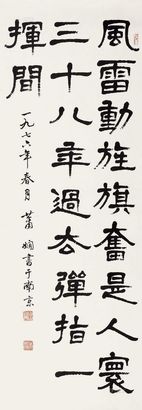 風雷動旌旗奮是人寰
三十八年過去彈指一
揮間
一九七六年春月蕭嫻書于南京